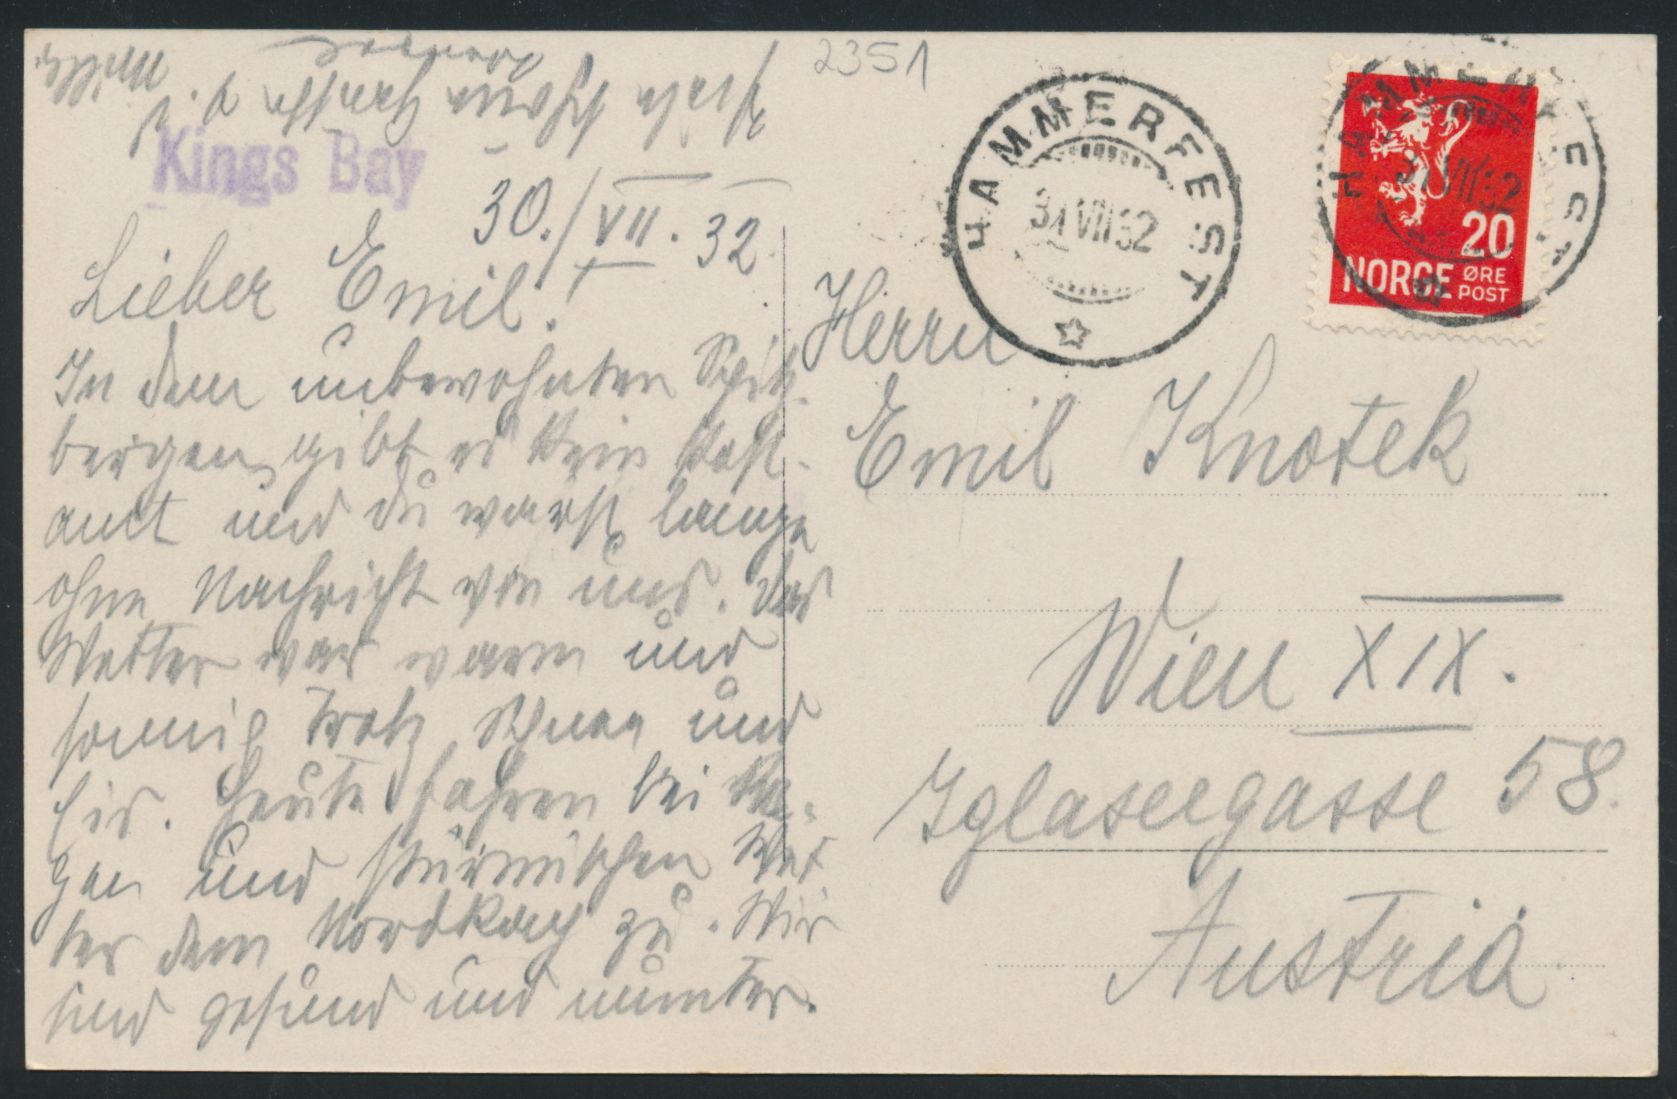 2351
Kings Bay
30./VII. 32.
Lieber Emil!
In dem unbewohnten Spitz-
bergen gibt es kein Post-
amt und du warst lange
ohne Nachricht von uns. Das
Wetter war warm und
sonnig trotz Schnee und
Eis. Heute fahren bei Re-
gen und stürmischen Wet
ter dem Nordkap zu. Wir
sind gesund und munter.
HAMMERFEST
31 VII 32
HAMMERFEST
31 VII 32
20
NORGE ØRE
POST
Herrn
Emil Knotek
Wien XIX.
Iglaseegasse 58.
Austria.